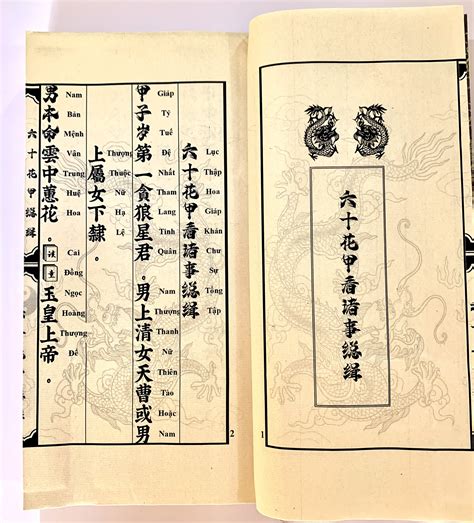 六十花甲看諸事總緝
1
Lục Thập Hoa Giáp Khán Chư Sự Tổng Tập
六十花甲看諸事總緝
Giáp Tý Tuế Đệ Nhất Tham Lang Tinh Quân Nam Thượng Thanh Nữ Thiên Tào Hoặc Nam
甲子岁第一貪狼星君。男上清女天曹或男
Thượng Thuộc Nữ Hạ Lệ
上屬女下隸。
Nam Bản Mệnh Vân Trung Huệ Hoa Cai Đồng Ngọc Hoàng Thượng Đế
男本命雲中蕙花。該童玉皇上帝。
六十花甲總緝
2